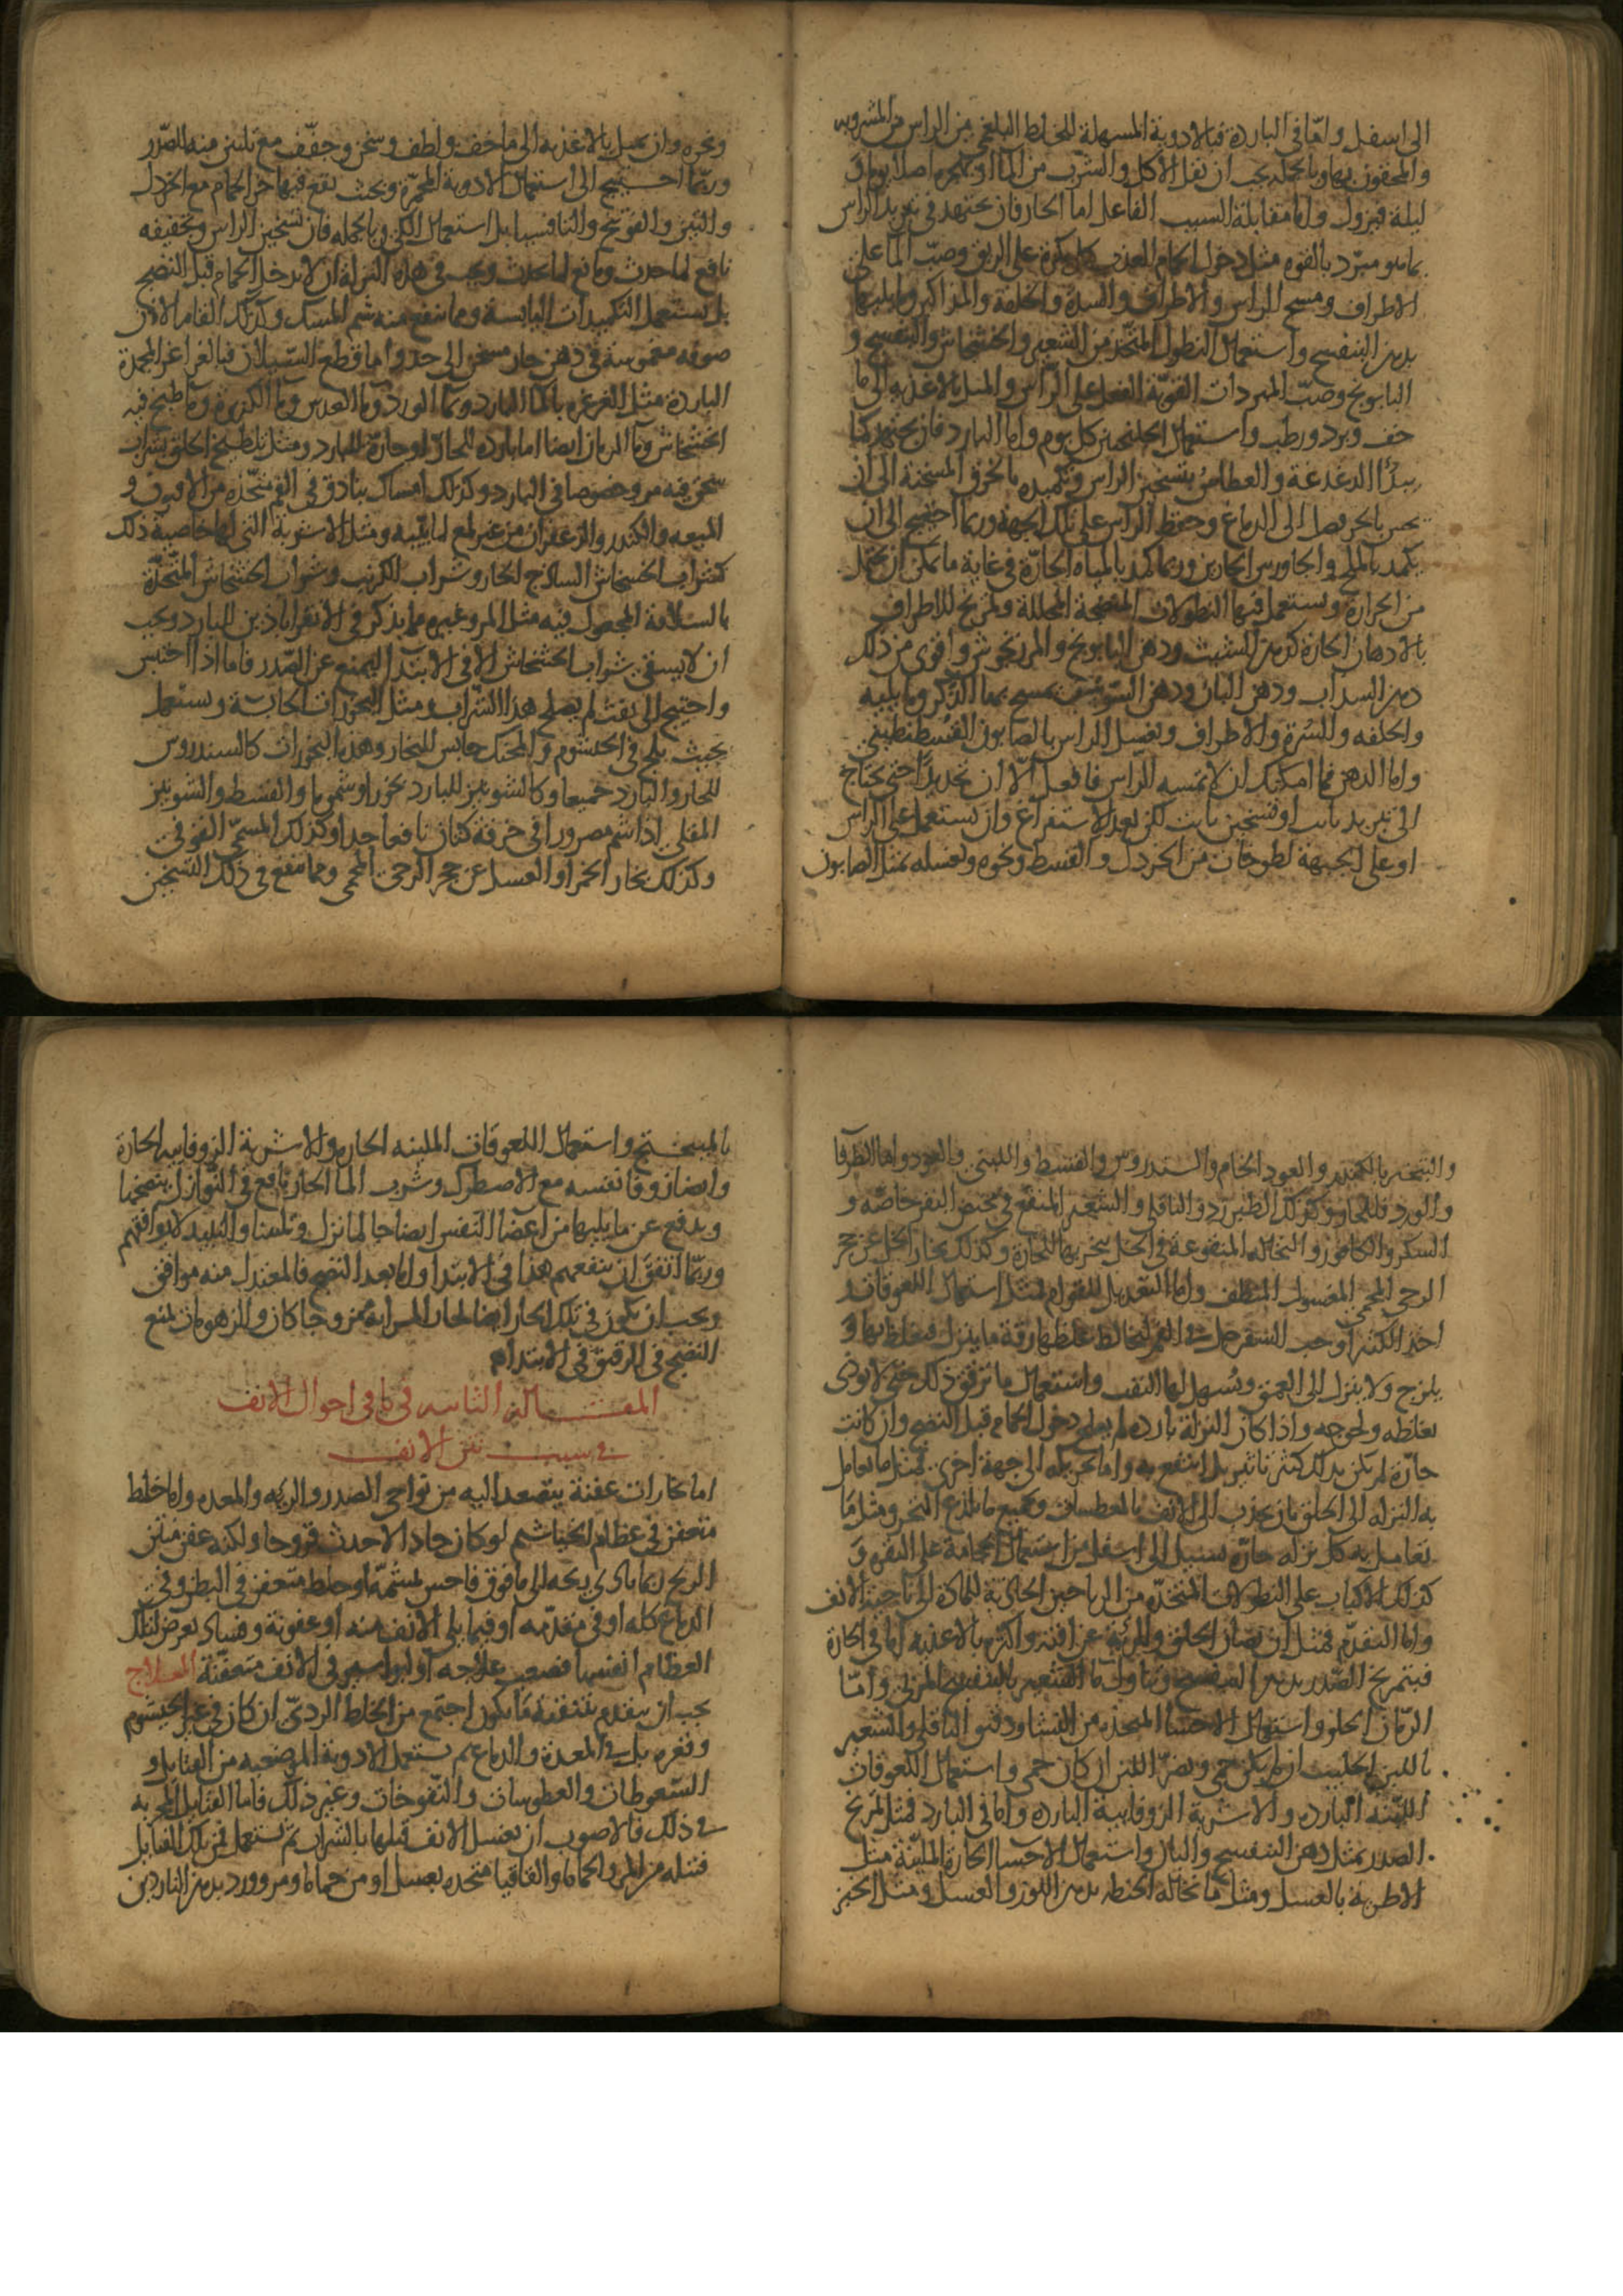 الى اسفل واما في الباردة فبالادوية المسهلة للخلط البلغمي من الراس من المشروبه
والمحقون بها وبالجملة يجب ان تقل الاكل والشرب من الماء او تهجره اصلا يوما و
ليلة فيزول واما مقابلة السبب الفاعل اما الحار فان يجتهد في تبريد الراس
بما هو مبرد بالقوه مثل دخول الحمام العذب كل بكرة على الريق وصب الما على
الاطراف ومسح الراس والاطراف والسرة والحلقة والمذاكير وما يليها
بدهن البنفسج واستعمال النطول المتخذ من الشعير والخشخاش والبنفسج و
البابونج وصب المبردات القوية الفعل على الراس والميل بالاغذيه الى ما
خف وبرد ورطب واستعمال الجلنجبين كل يوم واما البارد فان يجتهد كما
يبدأ الدغدغة والعطاس بتسخين الراس وتكميده بالخرق المسخنة الى ان
يحس بالحر وصل الى الدماغ وحفظ الراس على تلك الجهة وربما احتيج الى ان
يكمد بالملح والجاورس الحارين وربما كمد بالمياه الحارة في غاية ما يمكن ان يحتمل
من الحرارة ويستعمل فيها النطولات المنضجة المحللة وتمريخ للاطراف
بالادهان الحارة كدهن الشبث ودهن البابونج والمرزنجوش واقوى من ذلك
دهن السداب ودهن البان ودهن السوسن يمسح بها الذكر وما يليه
والحلقه والسرة والاطراف وتغسل الراس بالصابون القسطنطيني
واما الدهن فما امكنك ان لا تمسه الراس فافعل الا ان تجد بدا حتى يحتاج
الى تبريد ثابت او تسخين ثابت لكن بعد الاستفراغ وان يستعمل على الراس
او على الجبهة لطوخات من الخردل والقسط ونحوه وتغسله بمثل الصابون
ونحوه وان يميل بالاغذيه الى ما خف ولطف وسخن وجفف مع تليين منه للصدر
وربما احتيج الى استعمال الادوية المحمرة وبحيث يقع فيها خرو الحمام مع الخردل
والتين والفوتنج والثافسيا بل استعمال الكي وبالجمله فان تسخين الراس وتجفيفه
نافع لما حدث ومانع لما يحدث ويجب في هذه النزلة ان لا يدخل الحمام قبل النضج
بل يستعمل التكميدات اليابسة ومما ينفع منه شم المسك وكذلك القام الاذن
صوفه مغموسة في دهن حار مسخن الى حد واما قطع السيلان فبالغراغر المجمدة
الباردة مثل الغرغره بالما البارد وما الورد وما العدس وما الكزبرة وما طبيخ فيه
الخشخاش وما الرمان ايضا اما باردة للحار او حارة للبارد ومثل تلطيخ الحلق بشراب
سخن فيه مر وخصوصا في البارد وكذلك امساك بنادق في الفم متخذة من الافيون و
الميعه والكندر والزعفران من غير بلع لما يليه ومثل الاشربة التي لها خاصية ذلك
كشراب الخشخاش الساذج للحار وشراب الكرنب وشراب الخشخاش المتخذة
بالسلافة المجعول فيه مثل المر وغيره مما يذكر في الاقراباذين للبارد ويجب
ان لا يسقى شراب الخشخاش الا في الابتدا ليمنع عن الصدر فاما اذا احتبس
واحتيج الى نفث لم يصلح هذا الشراب ومثل البخورات الحابسة ويستعمل
بحيث يلج في الخيشوم والحنك حابس للبخار وهذه البخورات كالسندروس
للحار والبارد جميعا وكالشونيز للبارد بخورا وشموما والقسط والشونيز
المقلي اذا شم مصرورا في خرقة كتان نافعا جدا وكذلك المسمى الفوقي
وكذلك بخار الخمر او العسل عن حجر الرحى المحمي ومما ينفع في ذلك التسخين
والتبخر بالكندر والعود الخام والسندروس والقسط واللبنى والعود واما الطرفا
والورد فللحار وكذلك الطبرزد والباقلى والشعير المنقع في مخيض البقر خاصه و
السكر والكافور والنخاله المنقوعة في الخل يبخر بها للحارة وكذلك بخار الخل عن حجر
الرحى المحمى المغسول المنظف واما التعديل للقوام فمثل استعمال اللعوقات
اخذ الكثيرا وحب السفرجل في الفم ليخالط غلظها رقة ما ينزل فيغلظ بها و
يلزج ولا ينزل الى العمق ويسهل لها النفث واستعمال ما ترقق ذلك حتى لا يوذى
بغلظه ولحوجه واذا كان النزلة بارده لم يصلح دخول الحمام قبل النضج وان كانت
حارة لم يكن بذلك كثير تاثير بل انتفع به واما تحريكه الى جهة اخرى فمثل ما يعامل
به النزله الى الحلق بان يجذب الى الانف بالمعطسات وجميع ما يلذع المنخر ومثل ما
يعامل به كل نزله حارة تسيل الى اسفل من استعمال الحجامة على النقره و
كذلك الاكباب على النطولات المتخذه من الرياحين الجاذبة للمادة الى ناحية الانف
واما التقدم فمثل ان يصان الحلق والرئة عن افته واكثره بالاغذيه اما في الحارة
فبتمريخ الصدر بدهن البنفسج وتناول ما الشعير بالبنفسج المربى واما
الرمان الحلو واستعمال الاحسا المتخذه من النشا ودقيق الباقلى والشعير
باللبن الحليب ان لم يكن حمى ويضر اللبن ان كان حمى واستعمال اللعوقات
اللينه الباردة والاشربة الزوفايية الباردة واما في البارد فمثل تمريخ
الصدر بمثل دهن البنفسج والبان واستعمال الاحسا الحارة الملينة مثل
الاطرية بالعسل ومثل ما نخاله الحنطه بدهن اللوز والعسل ومثل الخبز
بالميبختج واستعمال اللعوقات الملينه الحاره والاشربة الزوفاييه الحارة
وايضا زوفا نفسه مع الاصطرك وشرب الما الحار نافع في النوازل ينضجها
ويدفع عن ما يليها من اعضا النفس ايضا جا لما نزل وتلينا والنبيد لا يوافقهم
وربما اتفق ان ينفعهم هذا في الابتدا واما بعد النضج فالمعتدل منه موافق
ويجب ان يكون في تلك الحار ايضا الشراب ممزوجا كان والزهومات يمنع
النضج في الرقيق في الابتدا م
المقالة الثانيه في باقي احوال الانف
في سبب نتن الانف
اما بخارات عفنة يتصعد اليه من نواحي الصدر والريه والمعده واما خلط
متعفن في عظام الخياشيم لو كان حادا لاحدث قروحا ولكنه عفن منتن
الريح ربما بادى ريحه الى ما فوق فاحس لمشمه او خلط متعفن في البطن وفي
الدماغ كله او في مقدمه او فيما يلي الانف منه او عفونة وفساد يعرض لتلك
العظام انفسها فصعب علاجه او لبواسير في الانف متعفنة العلاج
يجب ان يتقدم بتنقية ما يكون اجتمع من الخلط الردي ان كان في غير الخيشوم
وقعره بل في المعدة والدماغ ثم يستعمل الادوية الموضعيه من الفتايل و
السعوطات والعطوسات والنفوخات وغير ذلك فاما الفتايل المجربه
في ذلك فالاصوب ان يغسل الانف قبلها بالشراب ثم يستعمل فمن تلك الفتايل
فتيله من المر والحماما والقاقيا متخده بعسل او من حماما ومر وورد بدهن الناردين